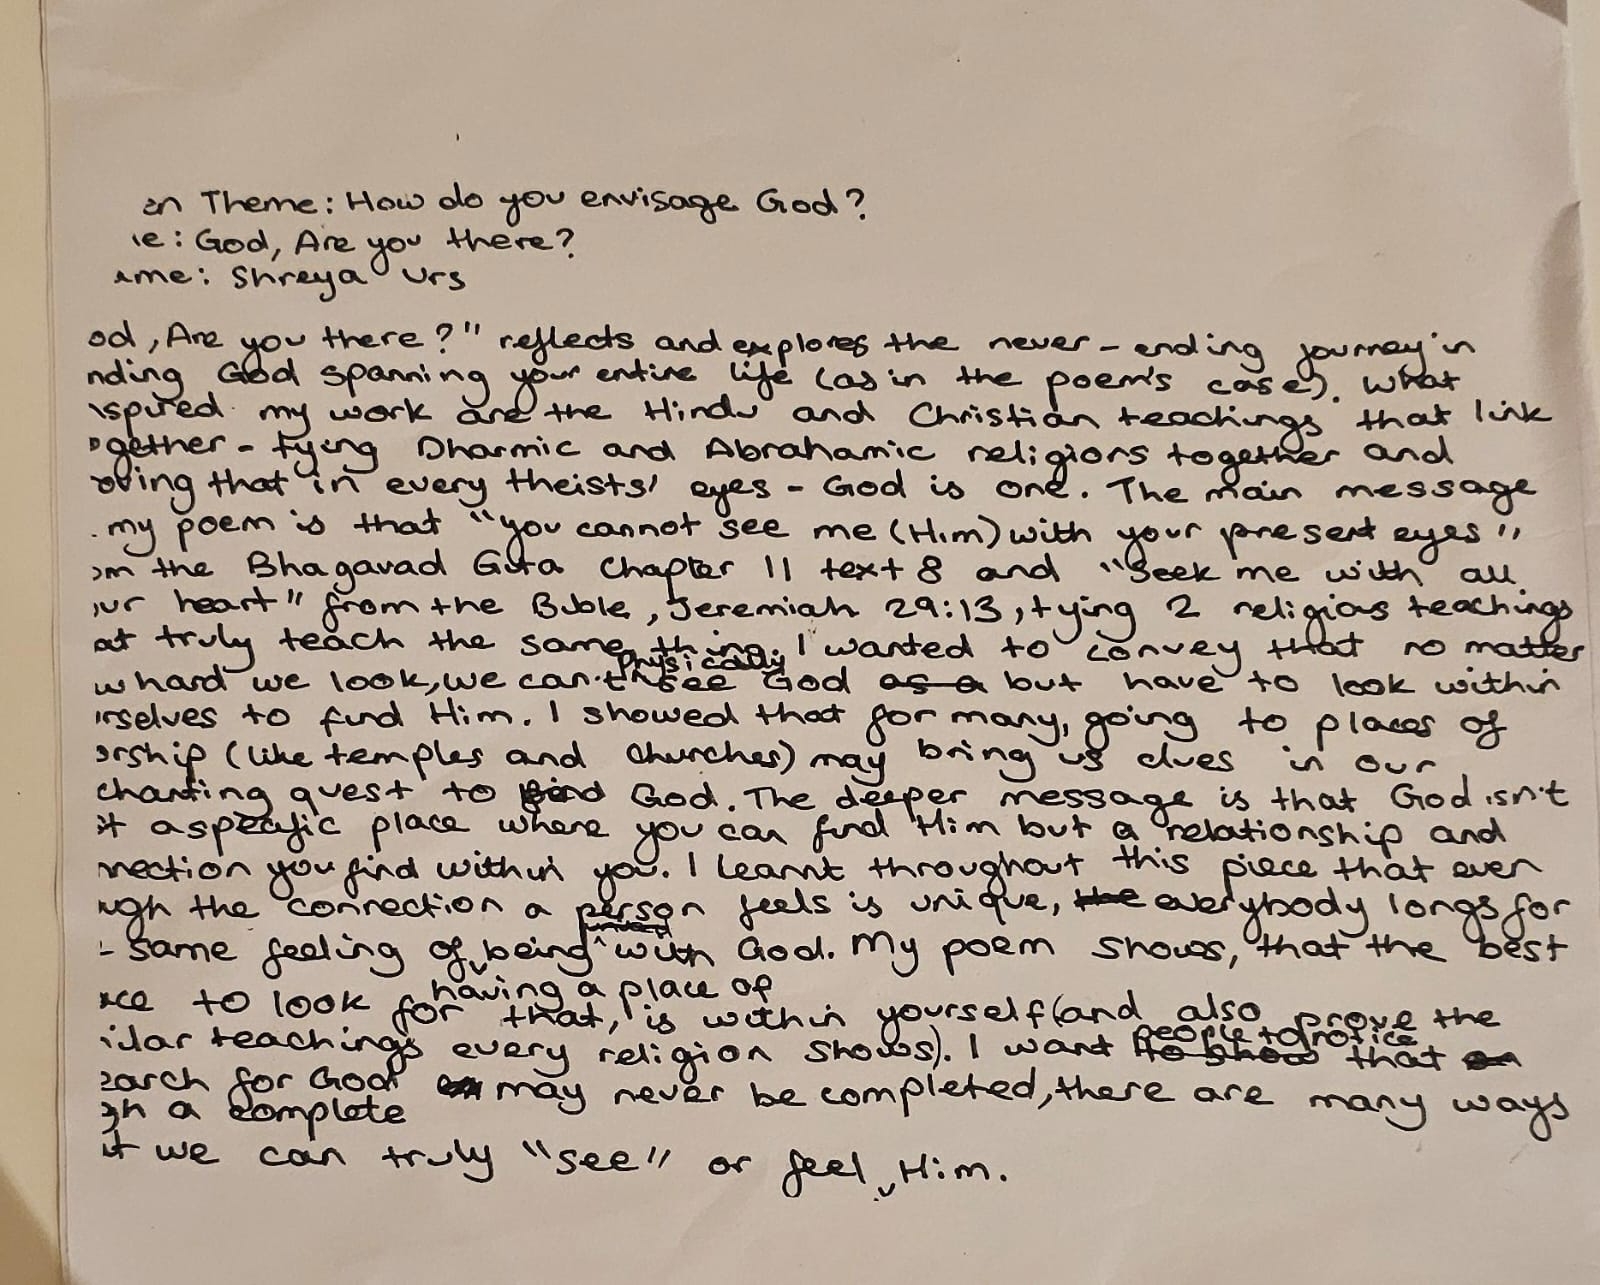 en Theme: How do you envisage God?
le: God, Are you there?
ame: Shreya Urs
od, Are you there?" reflects and explores the never-ending journey in
nding God spanning your entire life (as in the poem's case). What
nspired my work are the Hindu and Christian teachings that link
ogether - tying Dharmic and Abrahamic religions together and
oving that in every theists' eyes - God is one. The main message
my poem is that "you cannot see me (Him) with your present eyes"
om the Bhagavad Gita Chapter 11 text 8 and "Seek me with all
our heart" from the Bible, Jeremiah 29:13, tying 2 religious teachings
at truly teach the same thing. I wanted to convey that no matter
physically
w hard we look, we can't see God as a but have to look within
urselves to find Him. I showed that for many, going to places of
orship (like temples and churches) may bring us clues in our
chanting quest to find God. The deeper message is that God isn't
st a specific place where you can find Him but a relationship and
nection you find within you. I learnt throughout this piece that even
ugh the connection a person feels is unique, the everybody longs for
same feeling of being with God. My poem shows, that the best
having a place of
ace to look for that, is within yourself (and also prove the
people to notice
ilar teachings every religion shows). I want to show that
earch for God may never be completed, there are many ways
gh a complete
at we can truly "see" or feel Him.